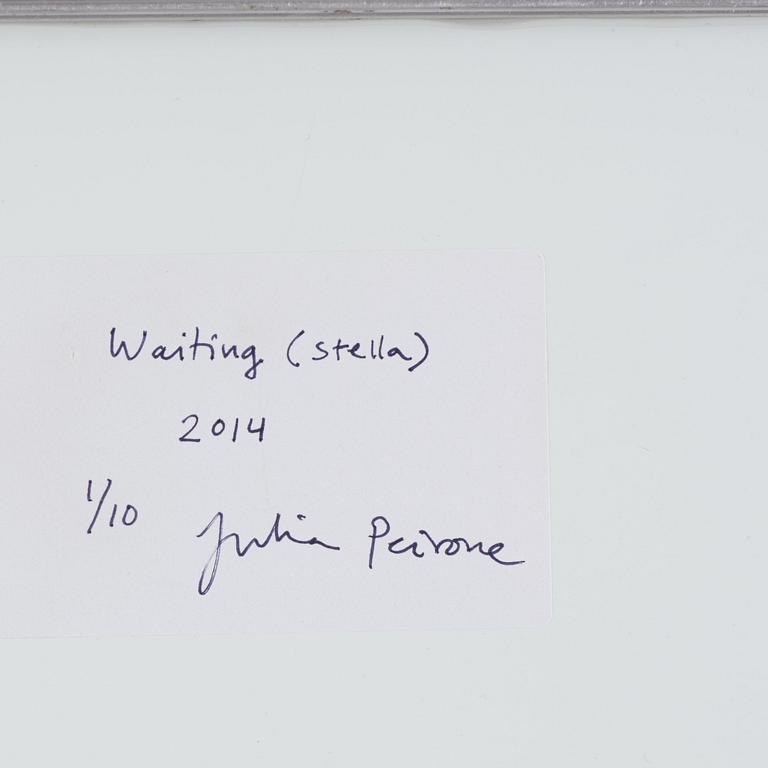 Waiting (stella)
2014
1/10 Julia Peirone